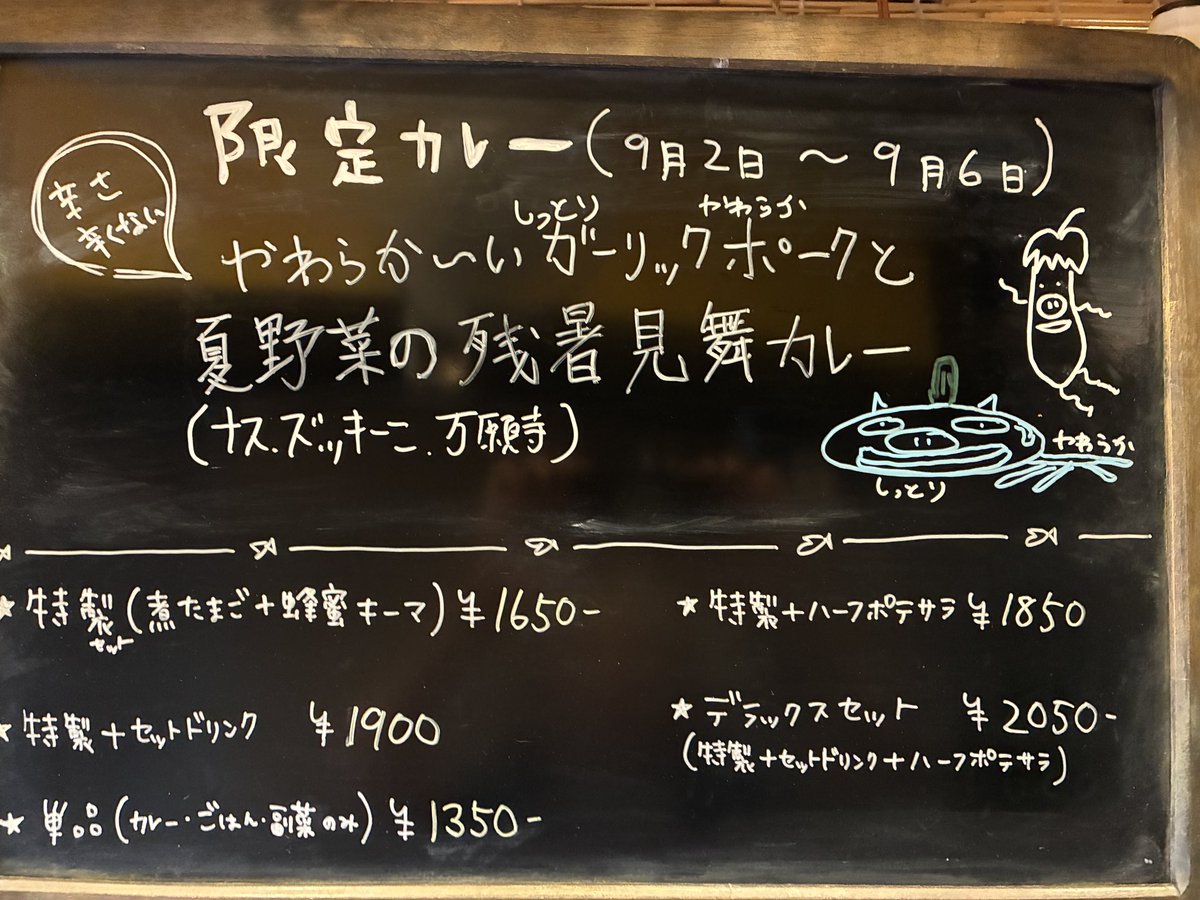 限定カレー(9月2日〜9月6日)
辛さ
辛くない
しっとり やわらか
やわらか〜いガーリックポークと
夏野菜の残暑見舞カレー
(ナス.ズッキーニ.万願寺)
やわらか
しっとり
★特製(煮たまご+蜂蜜キーマ)¥1650-
セット
★特製+ハーフポテサラ¥1850
★特製+セットドリンク ¥1900
★デラックスセット ¥2050-
(特製+セットドリンク+ハーフポテサラ)
★単品(カレー・ごはん・副菜のみ)¥1350-